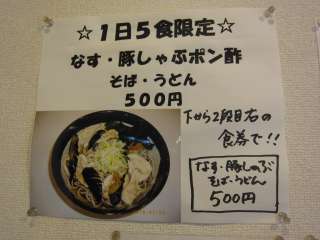 ☆１日５食限定☆
なす・豚しゃぶポン酢
そば・うどん
５００円
下から2段目右の
食券で!!
なす・豚しゃぶ
そば・うどん
500円